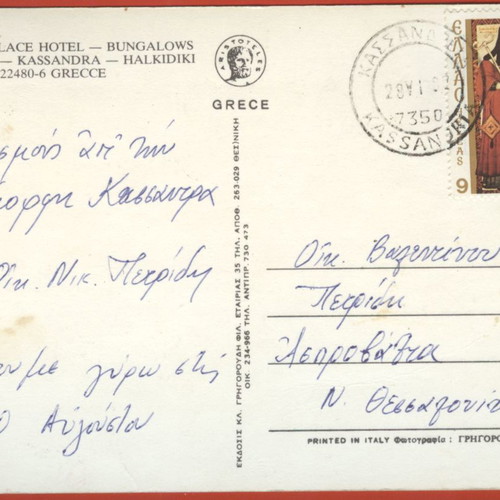 LACE HOTEL — BUNGALOWS
— KASSANDRA — HALKIDIKI
22480-6 GRECCE
ARISTOTELES
GREECE
ΚΑΣΣΑΝΔ
28 VI
7350
KASSANDR
ΕΛΛΑΣ
AS
9
σμούς ἀπ' τήν
Κασσάντρα
Οἰκ. Νικ. Πετρίδη
με γύρω στίς
Αὐγούστου
ΕΚΔΟΣΙΣ ΚΛ. ΓΡΗΓΟΡΟΥΔΗ ΦΙΛ. ΕΤΑΙΡΙΑΣ 35 ΤΗΛ. ΑΠΟΘ. 263-029 ΘΕΣ)ΝΙΚΗ
ΟΙΚ. 234-966 ΤΗΛ. ΑΝΤΙΠΡ. 730 473
Οἰκ. Βαλεντίνου
Πετρίδη
Ἀσπροβάλτα
Ν. Θεσσαλονί
PRINTED IN ITALY Φωτογραφία: ΓΡΗΓΟΡΟ